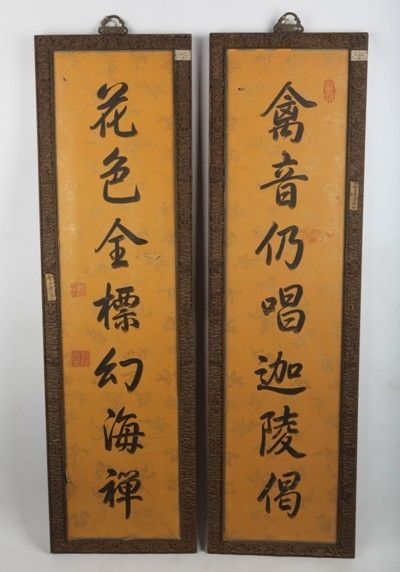 禽音仍唱迦陵偈
花色全標幻海禪